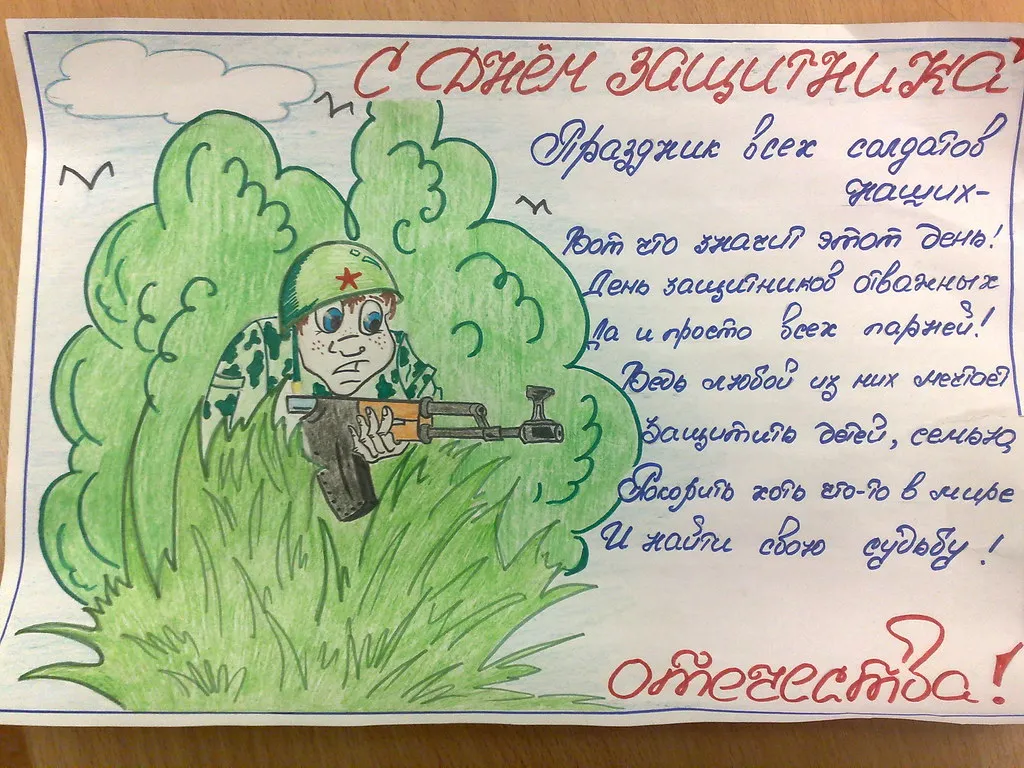 С ДНЁМ ЗАЩИТНИКА
Праздник всех солдатов
наших-
Вот что значит этот день!
День защитников отважных
Да и просто всех парней!
Ведь любой из них мечтает
Защитить детей, семью,
Покорить хоть что-то в мире
И найти свою судьбу!
Отечества!